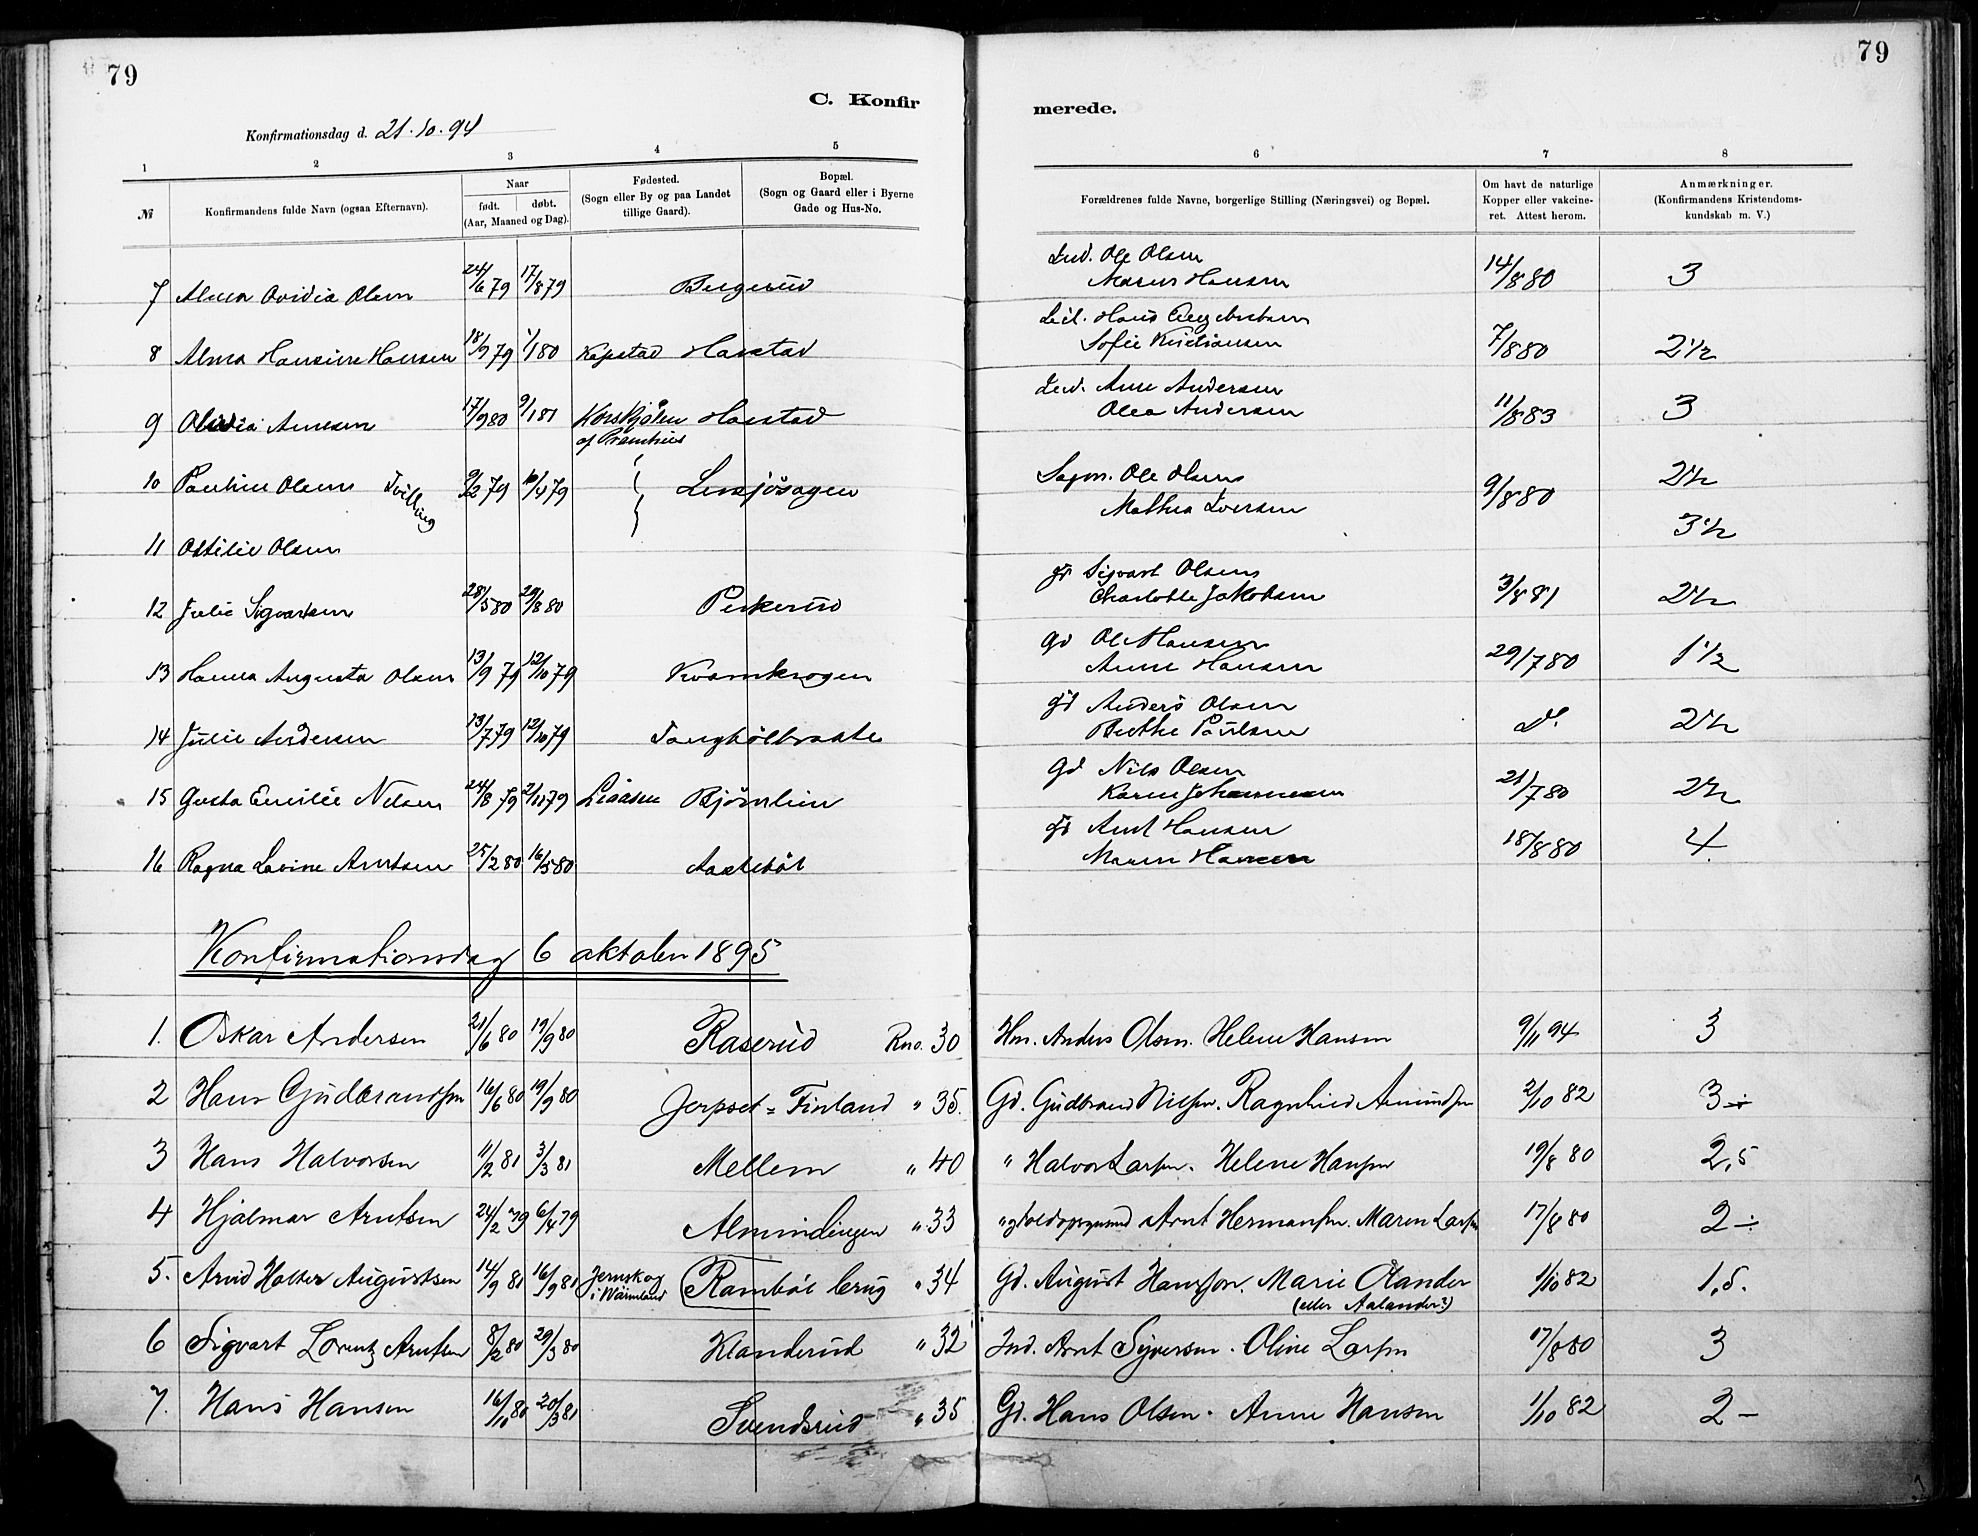 79
79
C. Konfir
merede.
Konfirmationsdag d. 21.10.94
1 2 3 4 5 6 7 8
№
Konfirmandens fulde Navn (ogsaa Efternavn).
Naar
født. døbt.
(Aar, Maaned og Dag).
Fødested.
(Sogn eller By og paa Landet
tillige Gaard).
Bopæl.
(Sogn og Gaard eller i Byerne
Gade og Hus-No.
Forældrenes fulde Navne, borgerlige Stilling (Næringsvei) og Bopæl.
Om havt de naturlige
Kopper eller vakcine-
ret. Attest herom.
Anmærkninger.
(Konfirmandens Kristendoms-
kundskab m. V.)
Ind. Ole Olsen
7 Alma Ovidia Olsen 24/6 79 17/8 79 Bergerud Maren Hansen 14/8 80 3
Hans
8 Alma Hansine Hansen 18/9 79 1/1 80 Kapstad Harstad Sofie Kristiansen 7/8 80 2 1/2
Ind. Arne Andersen
9 Arnesen 17/9 80 9/1 81 Harstad Olea Andersen 11/8 83 3
10 Pauline Olsen Tvilling 9/2 79 79 Ole Olsen 9/8 80 2 1/2
Mathea Iversen
11 Ottilie Olsen 3 1/2
Gd Sigvart Olsen
12 Julie Sigvartsen 28/5 80 29/8 80 Perkerud Charlotte Jakobsen 3/8 81 2 1/2
Gd Ole Hansen
13 Hanna Augusta Olsen 13/9 79 12/10 79 Kvamkrogen Anne Hansen 29/7 80 1 1/2
Gd Anders Olsen
14 Julie Andersen 13/7 79 12/10 79 Berthe Paulsen Do 2 1/2
Gd Nils Olsen
15 Gusta Emilie Nilsen 24/8 79 2/11 79 Liaasen Bjørnlien Karen Johannesen 21/7 80 2 1/2
Gd Arnt Hansen
16 Ragna Lovine Arntsen 25/2 80 16/5 80 Maren Hansen 18/8 80 4
Konfirmationsdag 6 oktober 1895
1. Oskar Andersen 21/6 80 19/9 80 Raserud Rno. 30 Hm. Anders Olsen. Helene Hansen 9/11 94 3
2 Hans Gudbrandsen 16/6 80 19/9 80 Jerpset = Finland " 35. Gd. Gudbrand Nilsen. Ragnhild Amundsen 2/10 82 3 ÷
3 Hans Halvorsen 11/2 81 3/3 81 Mellem " 40 " Halvor Larsen. Helene Hansen 19/8 80 2,5
4 Hjalmar Arntsen 24/2 79 6/4 79 Almindingen " 33 Arnt Hermansen. Maren Larsen 17/8 80 2 ÷
5. Arvid Holter Augustsen 14/9 81 16/9 81 Jernskog i Wärmland Rambøl brug " 34 Gd. August Hansson. Marie Olander 1/10 82 1,5.
(eller Aalander?)
6 Sigvart Lorentz Arntsen 8/2 80 29/3 80 Klanderud " 32 Ind. Arnt Syversen. Oline Larsen 17/8 80 3
7. Hans Hansen 16/10 80 20/3 81 Svendsrud " 35 Gd. Hans Olsen. Anne Hansen 1/10 82 2 –